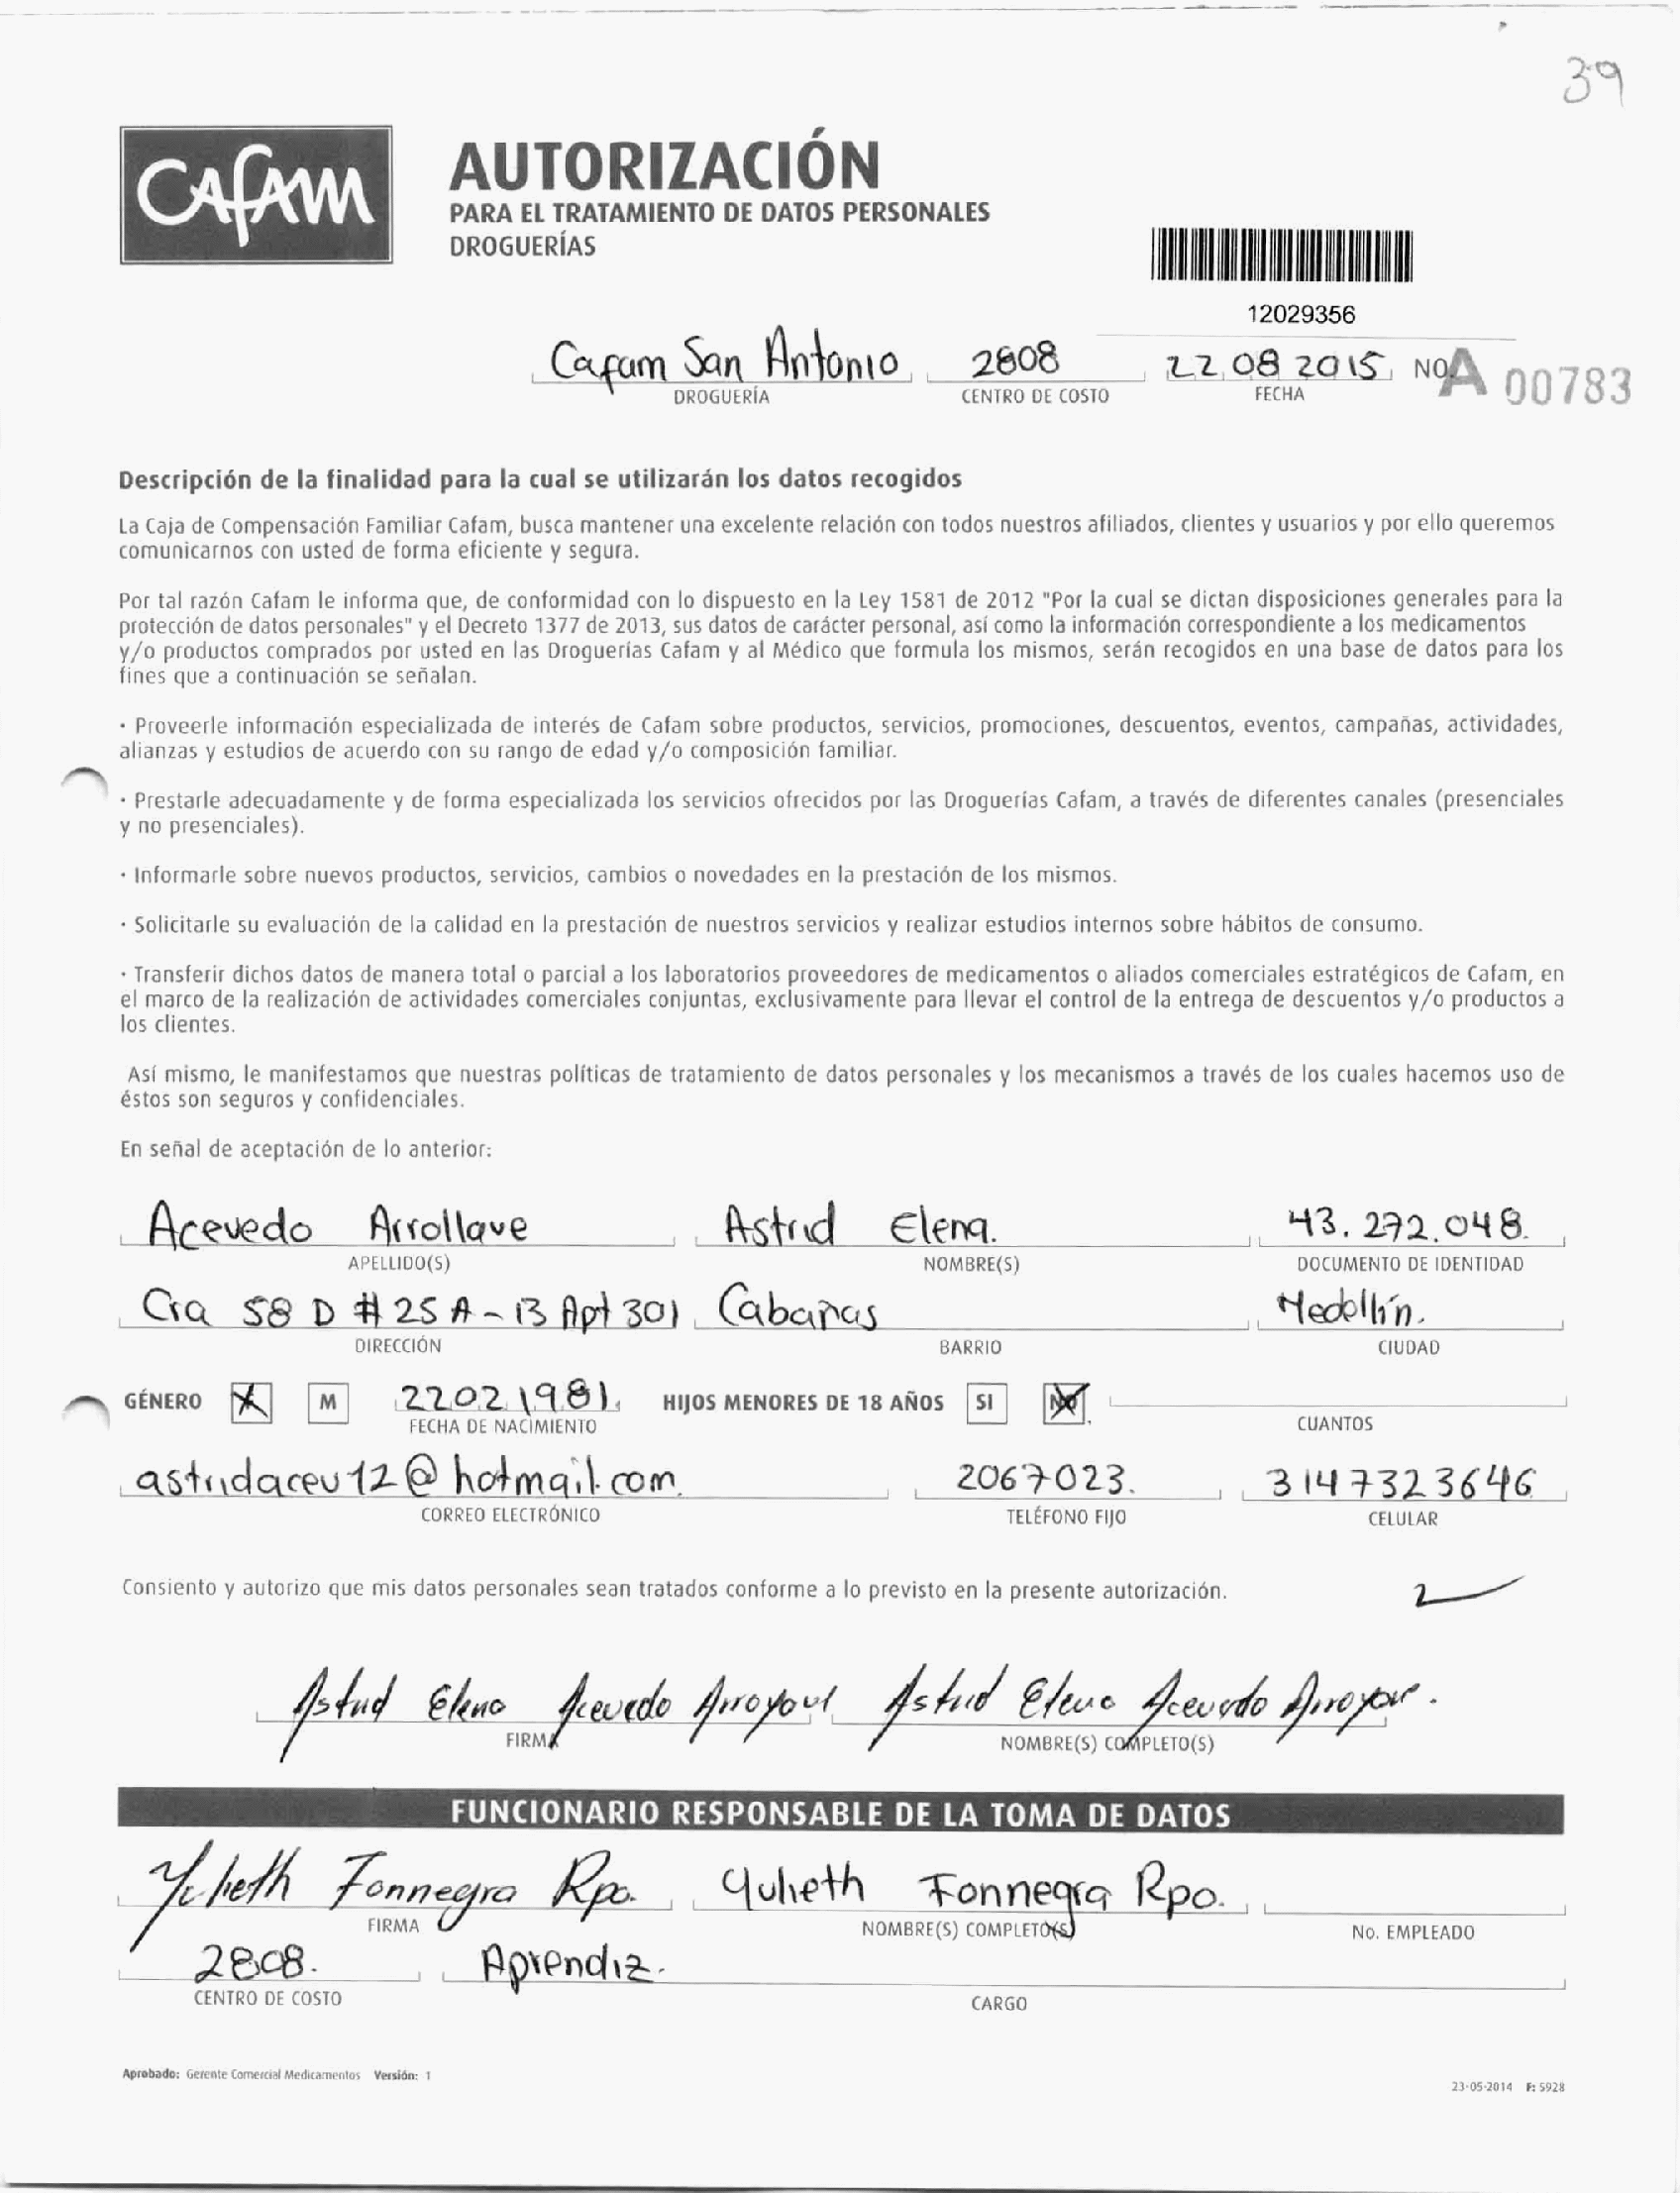 39
CAFAM
AUTORIZACIÓN
PARA EL TRATAMIENTO DE DATOS PERSONALES
DROGUERÍAS
12029356
Cafam San Antonio 2808 22 08 2015 NO. A 00783
DROGUERÍA CENTRO DE COSTO FECHA
Descripción de la finalidad para la cual se utilizarán los datos recogidos
La Caja de Compensación Familiar Cafam, busca mantener una excelente relación con todos nuestros afiliados, clientes y usuarios y por ello queremos
comunicarnos con usted de forma eficiente y segura.
Por tal razón Cafam le informa que, de conformidad con lo dispuesto en la Ley 1581 de 2012 "Por la cual se dictan disposiciones generales para la
protección de datos personales" y el Decreto 1377 de 2013, sus datos de carácter personal, así como la información correspondiente a los medicamentos
y/o productos comprados por usted en las Droguerías Cafam y al Médico que formula los mismos, serán recogidos en una base de datos para los
fines que a continuación se señalan.
· Proveerle información especializada de interés de Cafam sobre productos, servicios, promociones, descuentos, eventos, campañas, actividades,
alianzas y estudios de acuerdo con su rango de edad y/o composición familiar.
· Prestarle adecuadamente y de forma especializada los servicios ofrecidos por las Droguerías Cafam, a través de diferentes canales (presenciales
y no presenciales).
· Informarle sobre nuevos productos, servicios, cambios o novedades en la prestación de los mismos.
· Solicitarle su evaluación de la calidad en la prestación de nuestros servicios y realizar estudios internos sobre hábitos de consumo.
· Transferir dichos datos de manera total o parcial a los laboratorios proveedores de medicamentos o aliados comerciales estratégicos de Cafam, en
el marco de la realización de actividades comerciales conjuntas, exclusivamente para llevar el control de la entrega de descuentos y/o productos a
los clientes.
Así mismo, le manifestamos que nuestras políticas de tratamiento de datos personales y los mecanismos a través de los cuales hacemos uso de
éstos son seguros y confidenciales.
En señal de aceptación de lo anterior:
Acevedo Arrollave Astrid Elena. 43.272.048.
APELLIDO(S) NOMBRE(S) DOCUMENTO DE IDENTIDAD
Cra 58 D # 25 A - 13 Apt 301 Cabañas Medellín.
DIRECCIÓN BARRIO CIUDAD
GÉNERO X M 22 02 1981. HIJOS MENORES DE 18 AÑOS SI NO
FECHA DE NACIMIENTO CUANTOS
astridacev12@hotmail.com. 2067023. 3147323646
CORREO ELECTRÓNICO TELÉFONO FIJO CELULAR
Consiento y autorizo que mis datos personales sean tratados conforme a lo previsto en la presente autorización.
Astrid Elena Acevedo Astrid Elena Acevedo
FIRMA NOMBRE(S) COMPLETO(S)
FUNCIONARIO RESPONSABLE DE LA TOMA DE DATOS
Yulieth Fonnegra Rpo. Yulieth Fonnegra Rpo.
FIRMA NOMBRE(S) COMPLETO(S) No. EMPLEADO
2808. Aprendiz.
CENTRO DE COSTO CARGO
Aprobado: Gerente Comercial Medicamentos Versión: 1
23-05-2014 F: 5928